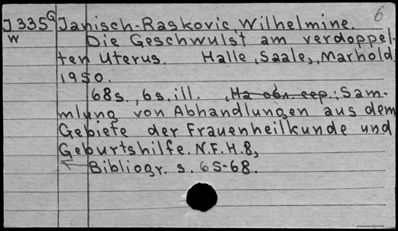 6
J 335 G Janisch-Raskovic, Wilhelmine.
W Die Geschwulst am verdoppel-
ten Uterus. Halle, Saale, Marhold,
1950.
68s., 6s. ill., Ha обл. еер.: Sam-
mlung von Abhandlungen aus dem
Gebiete der Frauenheilkunde und
Geburtshilfe. N.F.H.8,
Bibliogr. s. 65-68.